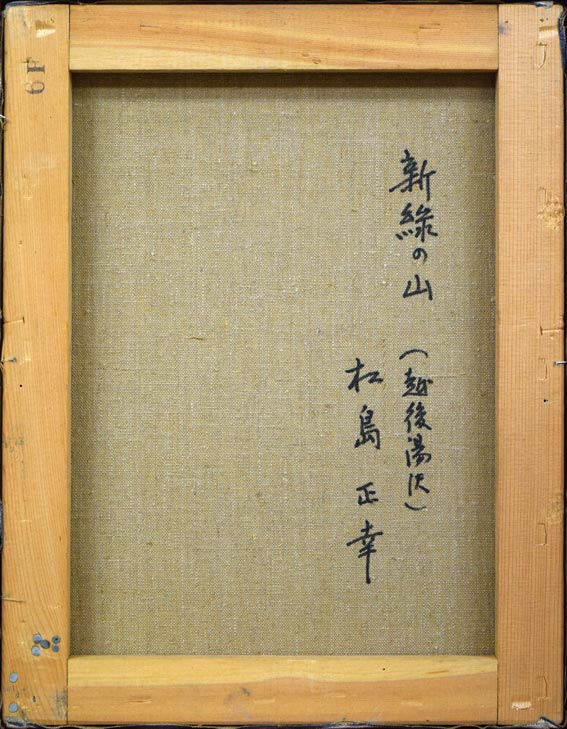 新緑の山 (越後湯沢)
松島正幸
6F